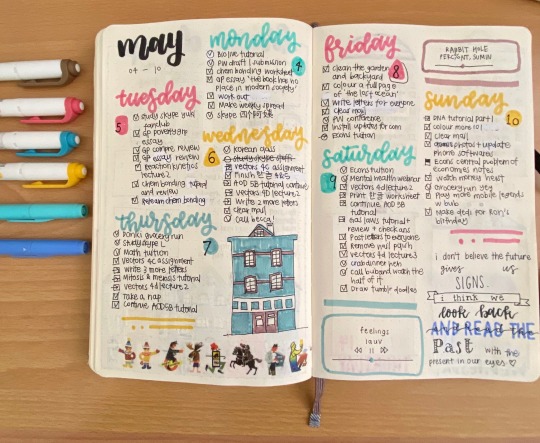 may
04 — 10
monday
4
Bio live tutorial
chem bonding worksheet
GP essay 'the book has no
place in modern society'
work out
Make weekly spread
skype
tuesday
5
study skype
GP poverty
essay
GP compre review
GP essay review
reaction kinetics
lecture 2
chem bonding
and review
chem bonding
wednesday
6
Korean quiz
study skype
vectors 4c assignment
ACDSB tutorial continue
vectors 4d lecture 2
Write 2 more letters
Clear mail
call becca!
thursday
7
grocery run
study skype
Math tuition
Vectors 4c assignment
write 3 more letters
Mitosis & meiosis tutorial
vectors 4d lecture 2
Take a nap
Continue ACDSB tutorial
friday
8
clean the garden
and backyard
colour a full page
of 'the lost ocean'
write letters for everyone
clear mail
PW conference
install updates for com
econs tuition
saturday
9
Econs tuition
Mental health webinar
vectors 4d lecture 2
Print worksheet
continue ACDSB
tutorial
review + check ans
Post letters to everyone
Remove wall
vectors 4d lecture 3
crab dinner
call bub and watch the
half of it
Draw tumblr doodles
feelings
lauv
RABBIT HOLE
sunday
10
DNA tutorial part 1
colour more lol
Clear mail
photos + update
phone softwares
Econs central problem of
economics notes
watch money heist
grocery run
Play more mobile legends
w bub
make dedi for
birthday
i don't believe the future
gives us
SIGNS.
i think we
look back
AND READ THE
Past with the
present in our eyes ♡